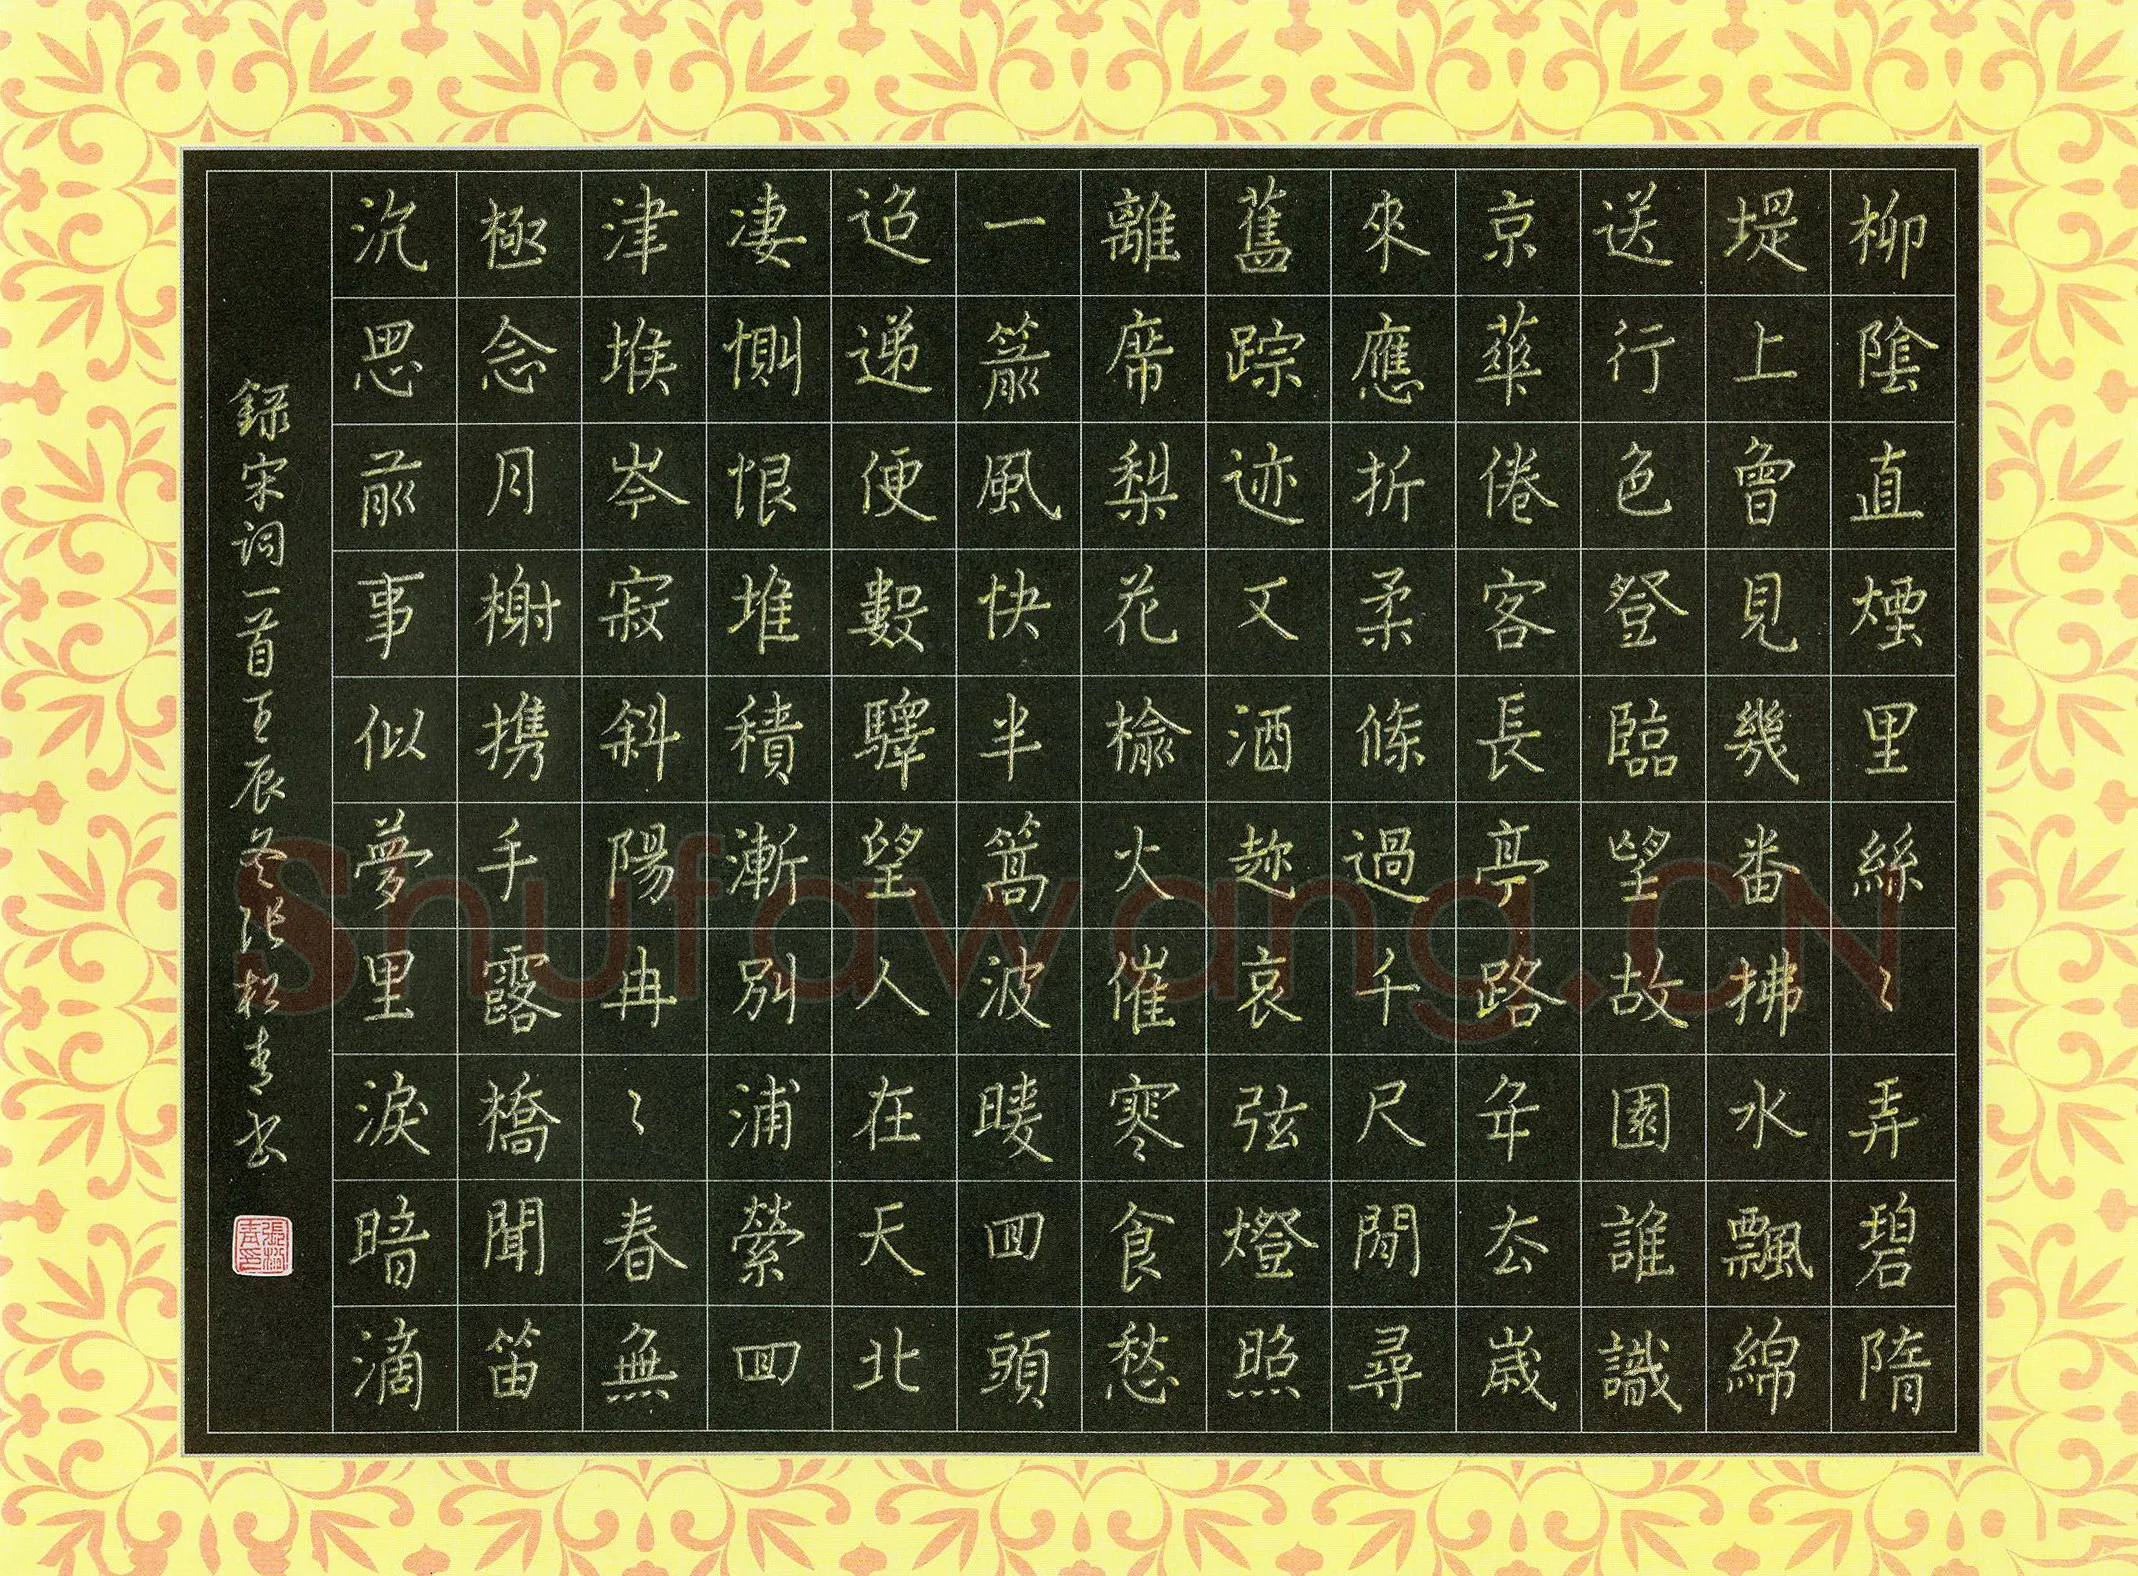 柳陰直煙里絲〻弄碧隋
堤上曾見幾番拂水飄綿
送行色登臨望故園誰識
京華倦客長亭路年去歲
來應折柔條過千尺閒尋
舊踪迹又酒趁哀弦燈照
離席梨花榆火催寒食愁
一箭風快半篙波暖回頭
迢递便數驛望人在天北
凄惻恨堆積漸別浦縈回
津堠岑寂斜陽冉〻春無
極念月榭携手露橋聞笛
沉思前事似夢里淚暗滴
錄宋詞一首壬辰冬張松青书
張松青印
Shufawang.CN